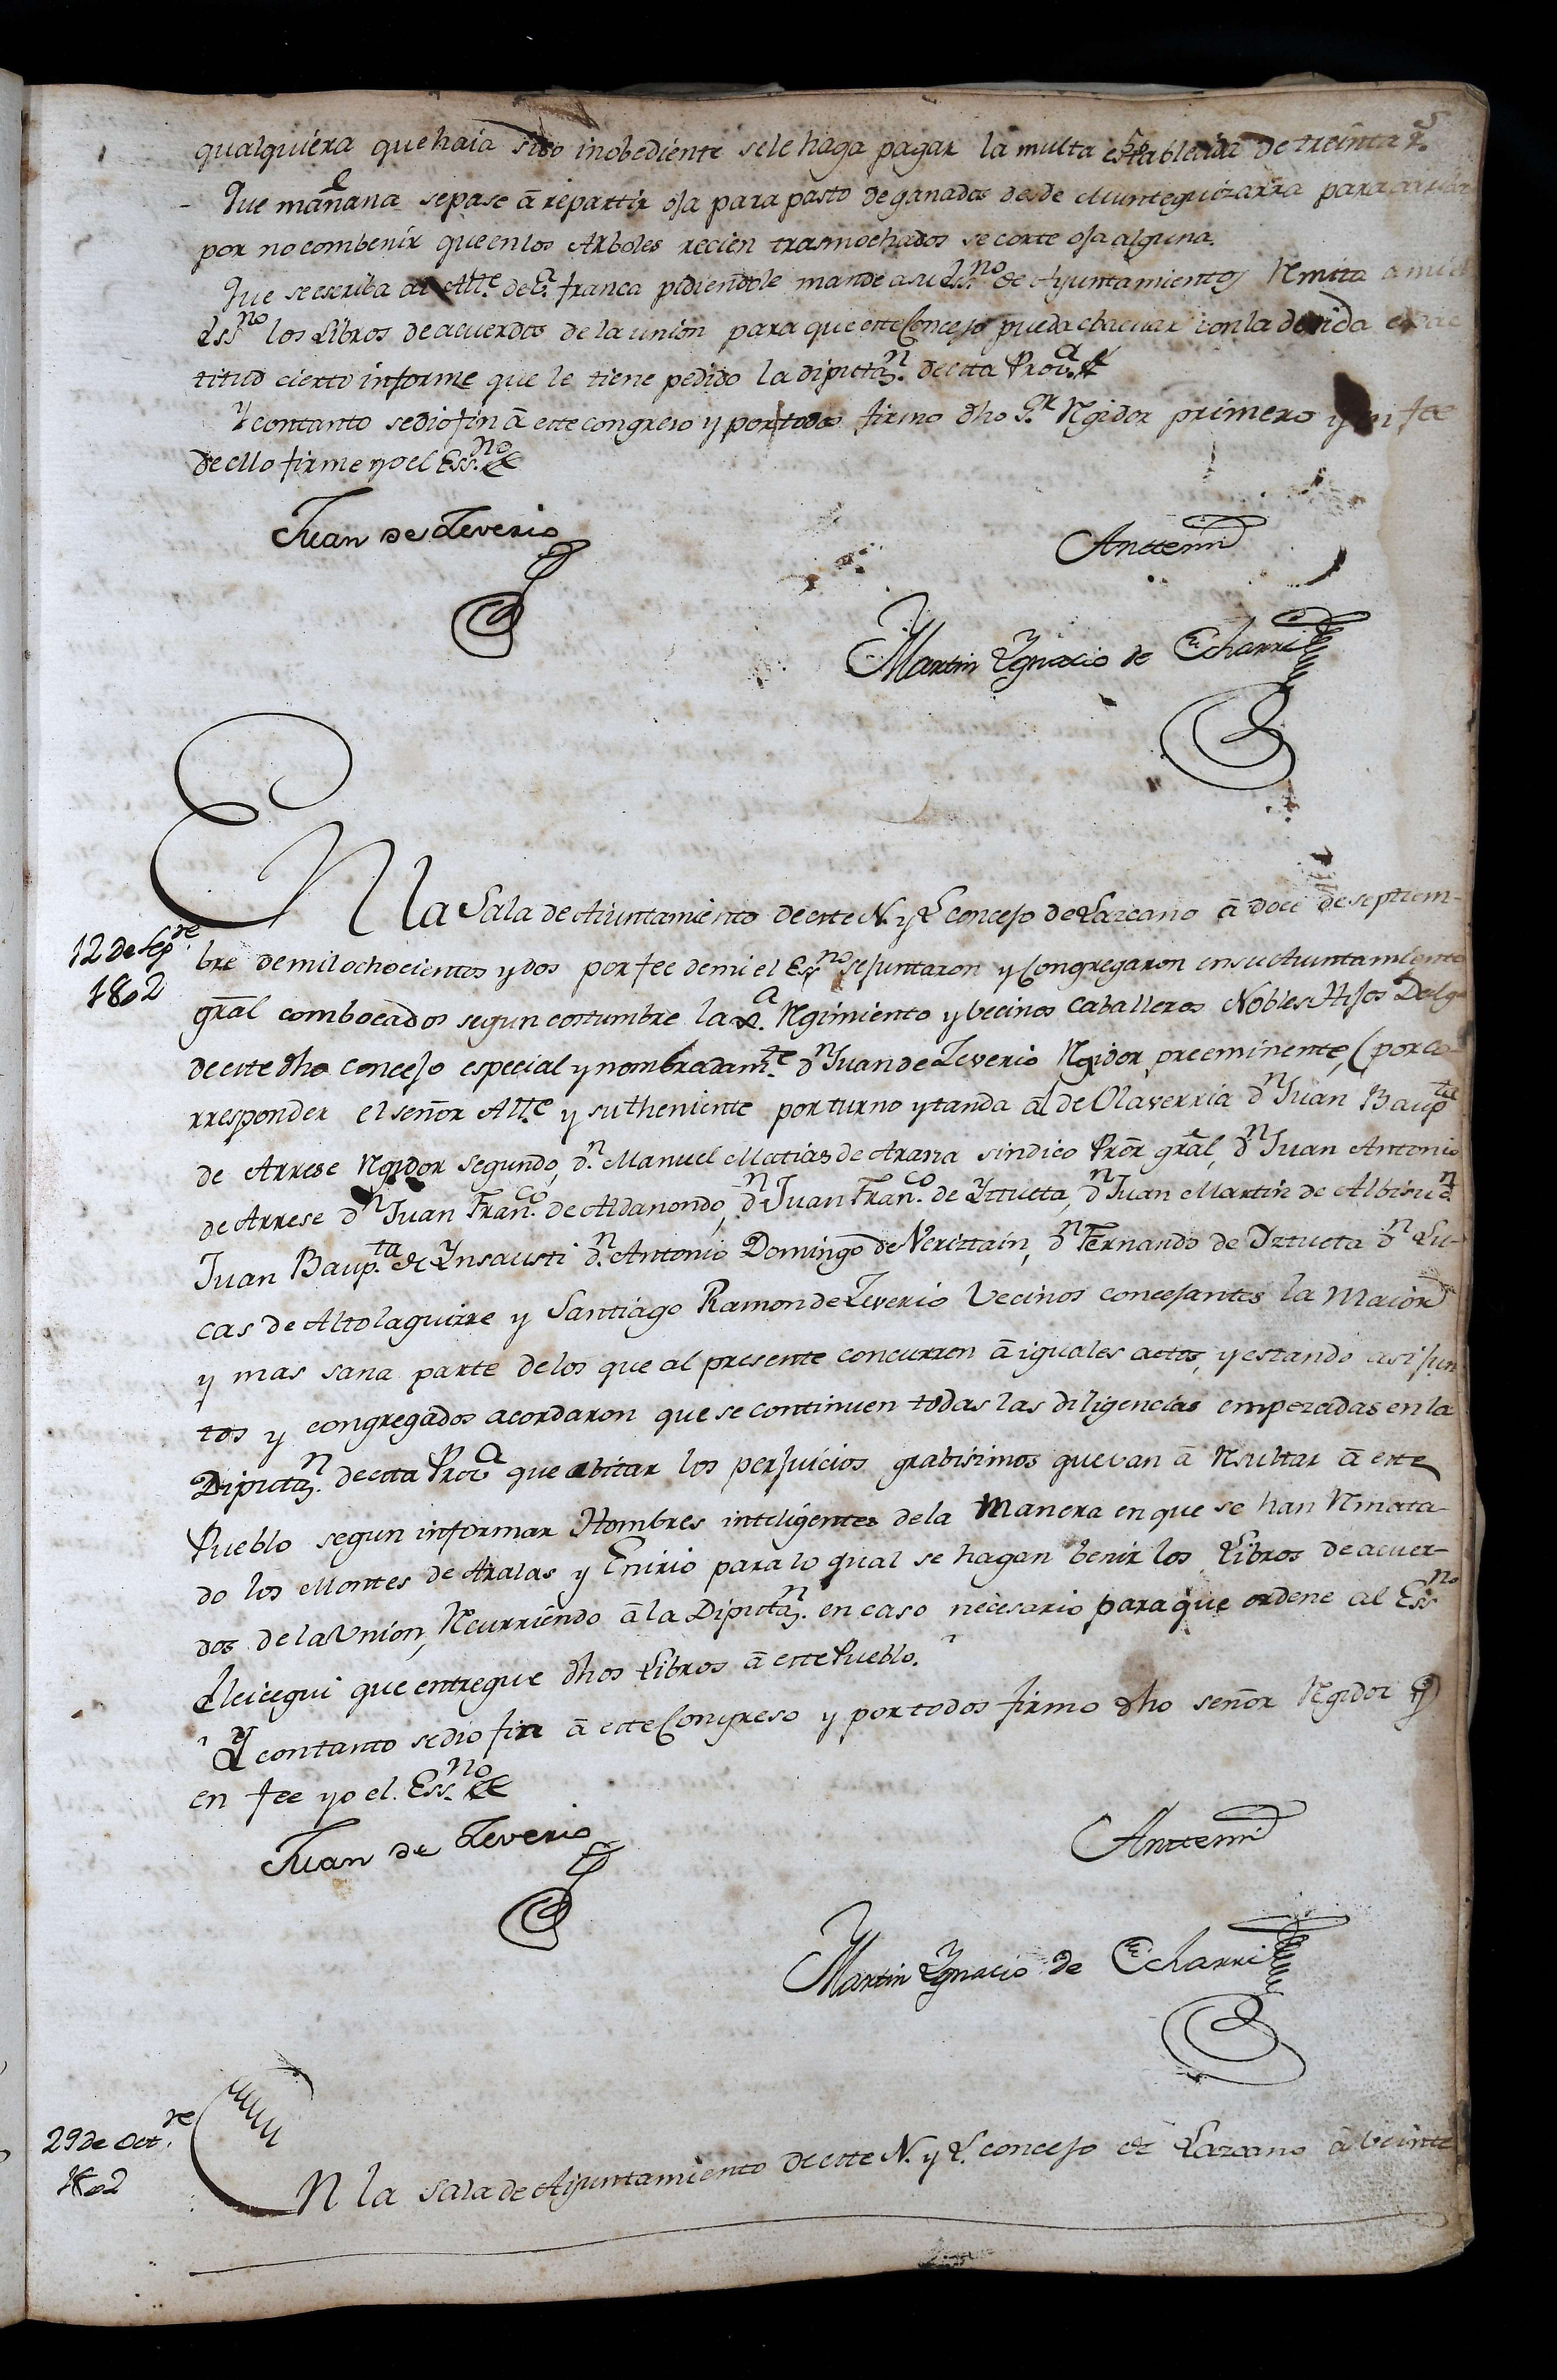 qualquiera que haia sido inobediente se le haga pagar la multa establecida de treinta r.s
Que mañana se pase â repartir oja para pasto de ganados desde Munteguizarra para
por no combenir que en los Arboles recien trasmochados se corte oja alguna.
Que se escriba al Alt.e de V.a franca pidiendole mande a su Ess.no de Ayuntamientos Remita a mi el
Ess.no los Libros de acuerdos de la union para que este Concejo pueda ebacuar con la devida exac
titud cierto informe que le tiene pedido la diputaz.n de esta Prov.a &
Y con tanto se dio fin â este congreso y por todos firmo dho S.r Regidor primero y en fee
de ello firme yo el Ess.no &
Juan de Zeverio
Anttemi
Martin Ygnacio de Echarri
12 de Sep.re
1802
EN la Sala de Aiuntamiento de este N. y L. concejo de Lazcano â doce de septiem-
bre de mil ochocientos y dos por fee de mi el Es.no se juntaron y Congregaron en su Aiuntamiento
grãl combocados segun costumbre la Regimiento y becinos Caballeros Nobles Hijos Dalgo
de este dho concejo especial y nombradam.te d.n Juan de Zeverio Regidor preeminente, (por co-
rresponder el señor Alt.e y su theniente por turno y tanda al de Olaverria d.n Juan Baup.ta
de Arrese Regidor segundo, d.n Manuel Matias de Arana sindico Prõr grãl, d.n Juan Antonio
de Arrese d.n Juan Fran.co de Aldanondo, d.n Juan Fran.co de Yztueta, d.n Juan Martin de Albisu d.n
Juan Baup.ta de Ynsausti d.n Antonio Domingo de Veriztain, d.n Fernando de Yztueta d.n Lu-
cas de Altolaguirre y Santiago Ramon de Zeverio Vecinos concejantes la maior
y mas sana parte de los que al presente concurren â iguales actos, y estando asi jun
tos y congregados acordaron que se continuen todas las diligencias empezadas en la
Diputaz.n de esta Prov.a que abitar los perjuicios grabisimos que van â Resultar â este
Pueblo segun informar Hombres inteligentes de la Manera en que se han Remata-
do los Montes de Aralar y Enirio para lo qual se hagan benir los Libros de acuer-
dos de la Union, Recurriendo â la Diputaz.n en caso necesario para que ordene al Ess.no
Eleicegui que entregue dhos Libros â este Pueblo.
Y con tanto se dio fin â este Congreso y por todos firmo dho señor Regidor y
en fee yo el Ess.no &
Juan de Zeverio
Anttemi
Martin Ygnacio de Echarri
29 de Oct.re
1802
EN la Sala de Ayuntamiento de este N. y L. concejo de Lazcano â beinte